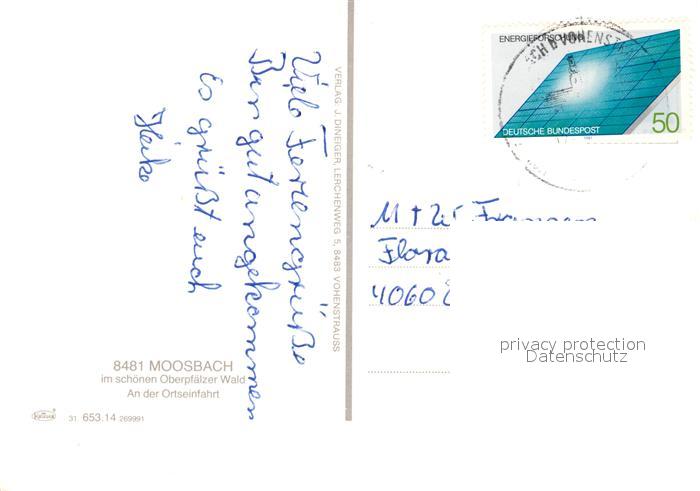 Viele Feriengrüße
Bin gut angekommen
Es grüßt euch
Heike
VERLAG: J. DINEIGER, LERCHENWEG 5, 8483 VOHENSTRAUSS
8481 MOOSBACH
im schönen Oberpfälzer Wald
An der Ortseinfahrt
31 653.14 269991
ENERGIEFORSCHUNG
DEUTSCHE BUNDESPOST
50
CH B VOHENST
M +
Flora
4060
privacy protection
Datenschutz